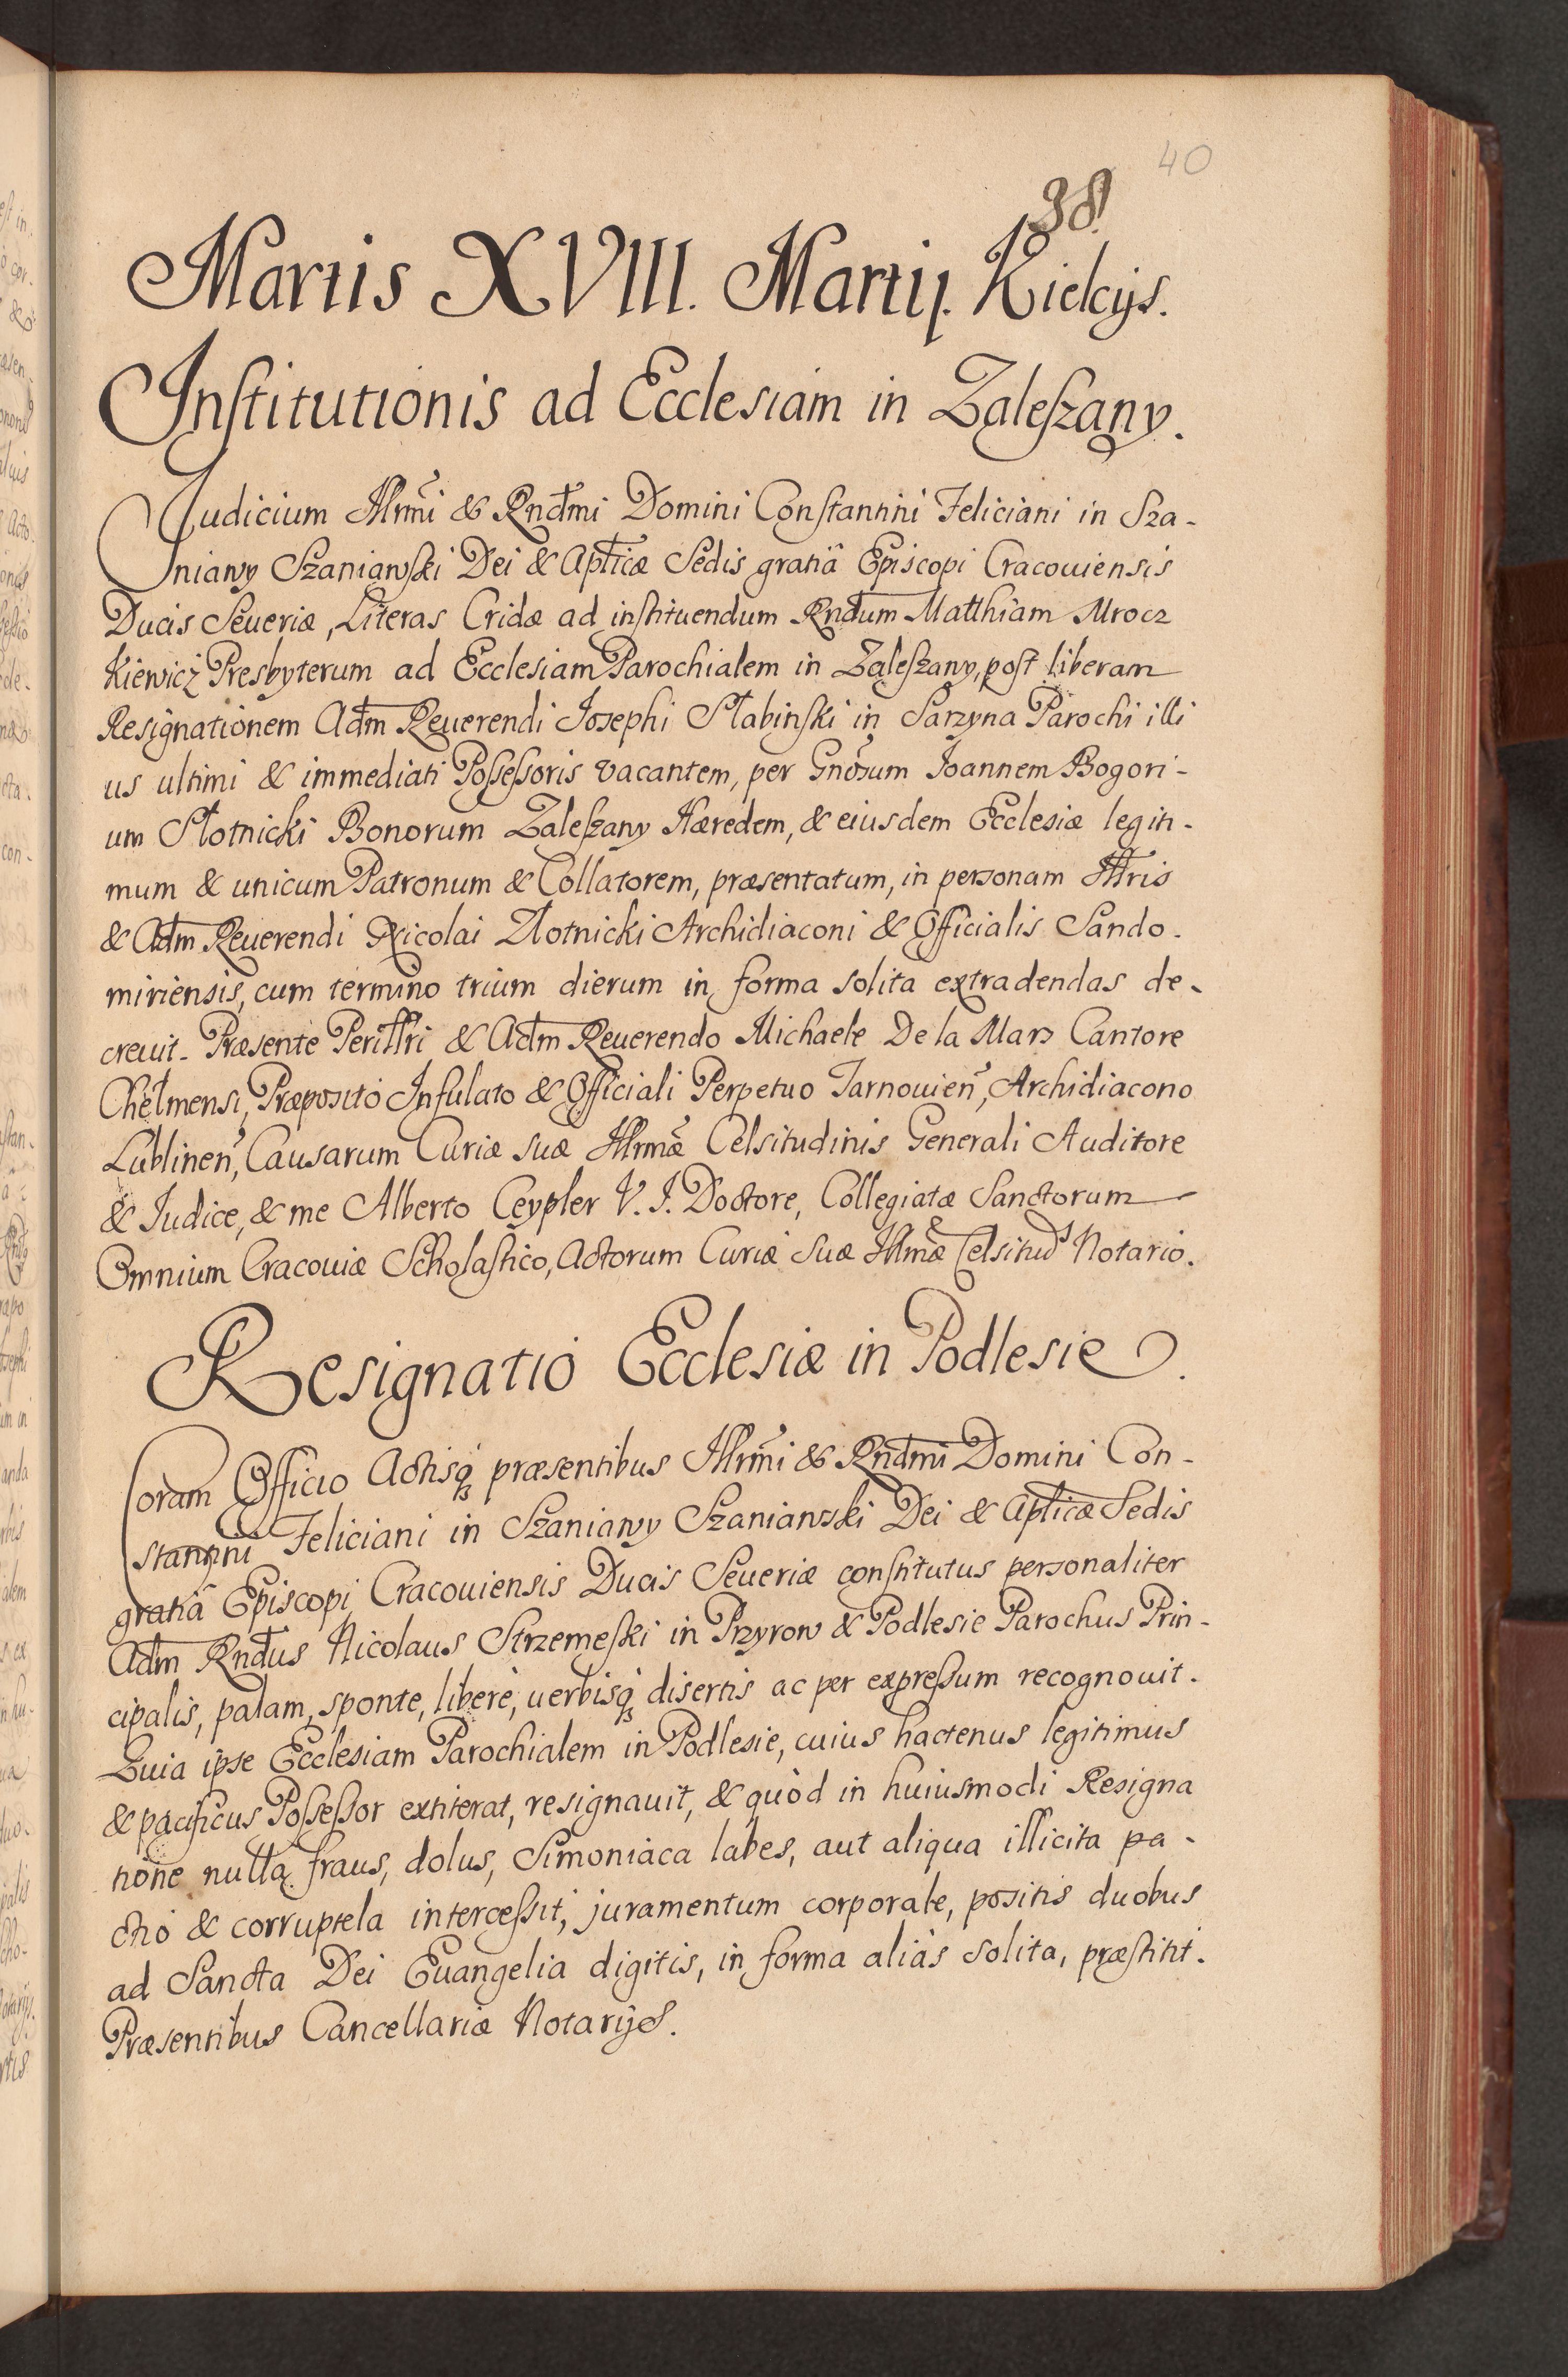 40
38
Martis XVIII. Martij. Kielcijs.
Institutionis ad Ecclesiam in Zaleszany.
Judicium Illrm̃i & Rndm̃i Domini Constantini Feliciani in Sza-
niawy Szaniawski Dei & Apticæ Sedis gratiâ Episcopi Cracouiensis
Ducis Seueriæ, Literas Cridæ ad instituendum Rndum Matthiam Mrocz
kiewicz Presbyterum ad Ecclesiam Parochialem in Zaleszany, post liberam
Resignationem Adm Reuerendi Josephi Słabinski in Sarzyna Parochi illi
us ultimi & immediati Possessoris vacantem, per Gnõsum Joannem Bogori-
um Słotnicki Bonorum Zaleszany Hæredem, & eiusdem Ecclesiæ legiti-
mum & unicum Patronum & Collatorem, præsentatum, in personam Illris
& Adm Reuerendi Nicolai Złotnicki Archidiaconi & Officialis Sando-
miriensis, cum termino trium dierum in forma solita extradendas de-
creuit. Præsente Perillri & Adm Reuerendo Michaele De la Mars Cantore
Chełmensi, Præposito Infulato & Officiali Perpetuo Tarnouien̉, Archidiacono
Lublinen̉, Causarum Curiæ suæ Illrmæ Celsitudinis Generali Auditore
& Judice, & me Alberto Ceypler V. J. Doctore, Collegiatæ Sanctorum
Omnium Cracouiæ Scholastico, Actorum Curiæ suæ Illmæ Celsituds Notario.
Resignatio Ecclesiæ in Podlesie.
Coram Officio Actisq̃ præsentibus Illrm̃i & Rndm̃i Domini Con-
stantini Feliciani in Szaniawy Szaniawski Dei & Apticæ Sedis
gratiâ Episcopi Cracouiensis Ducis Seueriæ constitutus personaliter
Adm Rndus Nicolaus Strzemeski in Przyrow & Podlesie Parochus Prin-
cipalis, palam, sponte, liberè, uerbisq̃ disertis ac per expressum recognouit.
Quia ipse Ecclesiam Parochialem in Podlesie, cuius hactenus legitimus
& pacificus Possessor extiterat, resignauit, & quòd in huiusmodi Resigna
tione nulla fraus, dolus, Simoniaca labes, aut aliqua illicita pa-
ctio & corruptela intercessit, juramentum corporale, positis duobus
ad Sancta Dei Euangelia digitis, in forma aliàs solita, præstitit.
Præsentibus Cancellariæ Notarijs.